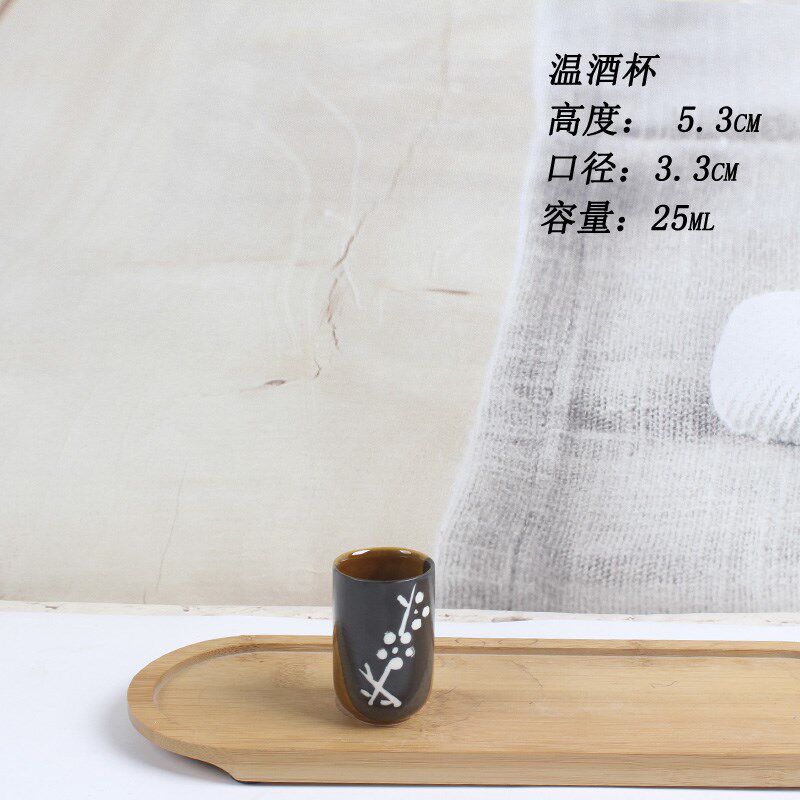 温酒杯
高度: 5.3CM
口径:3.3CM
容量:25ML